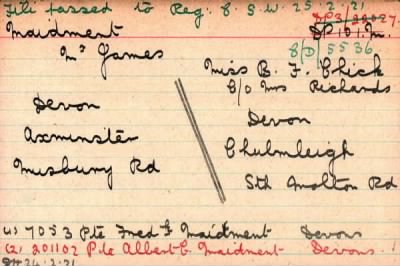 File passed to Reg: C.S.W. 25.2.21
SP 101 M.
C/D/5536
Maidment
Mr James
Miss B. F. Chick
C/O Mrs Richards
Devon
Axminster
Musbury Rd
Devon
Chulmleigh
Sth Molton Rd
(1) 7053 Pte Fred k Maidment Devons
(2) 201102 Pte Albert C. Maidment Devons.
24.2.21